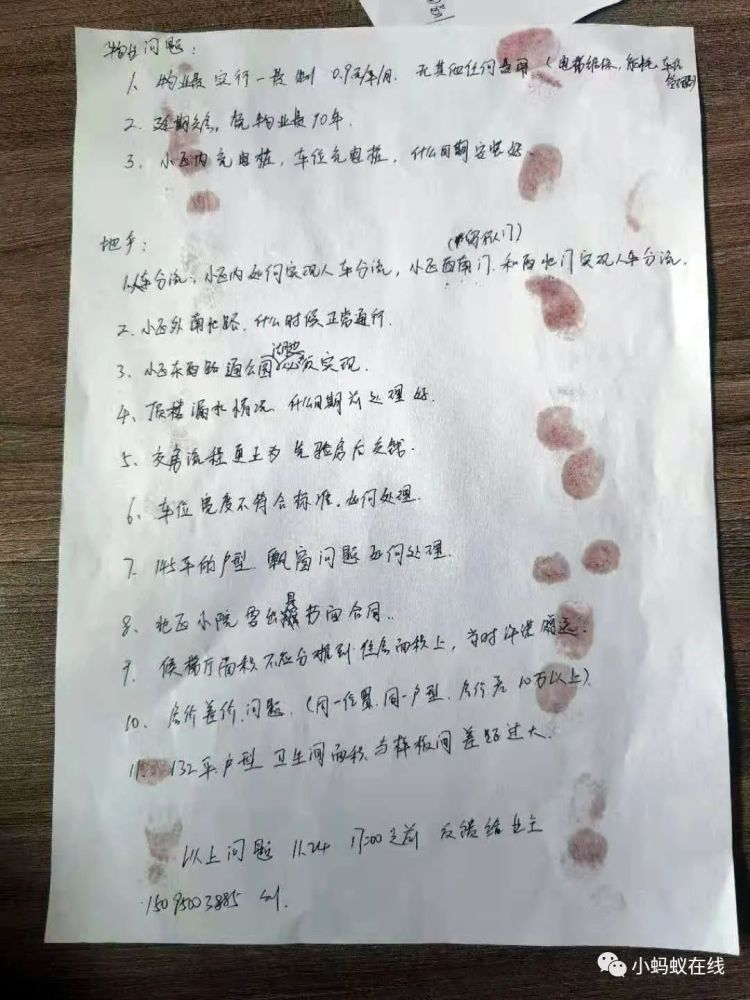 物业问题：
1、物业费实行一费制 0.9元/平/月. 无其他任何费用（电梯维保，能耗，车位
管理费）
2、延期交房，免物业费10年.
3、小区内充电桩，车位充电桩，什么日期安装好.
地产：
1、人车分流：小区内如何实现人车分流，小区西南门.和西北门实现人车分流.
2、小区外南北路.什么时候正常通行.
3、小区东西路通公园必须实现.
4、顶楼漏水情况.什么日期前处理好.
5、交房流程更正为先验房后交钱.
6、车位宽度不符合标准.如何处理.
7、145平的户型.飘窗问题如何处理.
8、北区小院需出具书面合同.
9、候梯厅面积不应分摊到住房面积上，当时许诺赠送.
10、房价差价.问题.（同一位置.同一户型.房价差10万以上）.
11、132平.户型卫生间面积与样板间差距过大.
以上问题 11.24 17:00之前 反馈给业主
15095003885 刘.
小蚂蚁在线